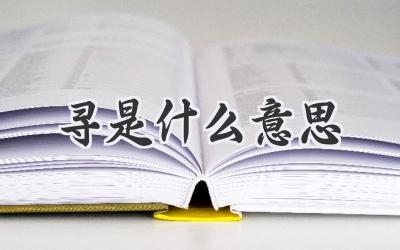 寻是什么意思